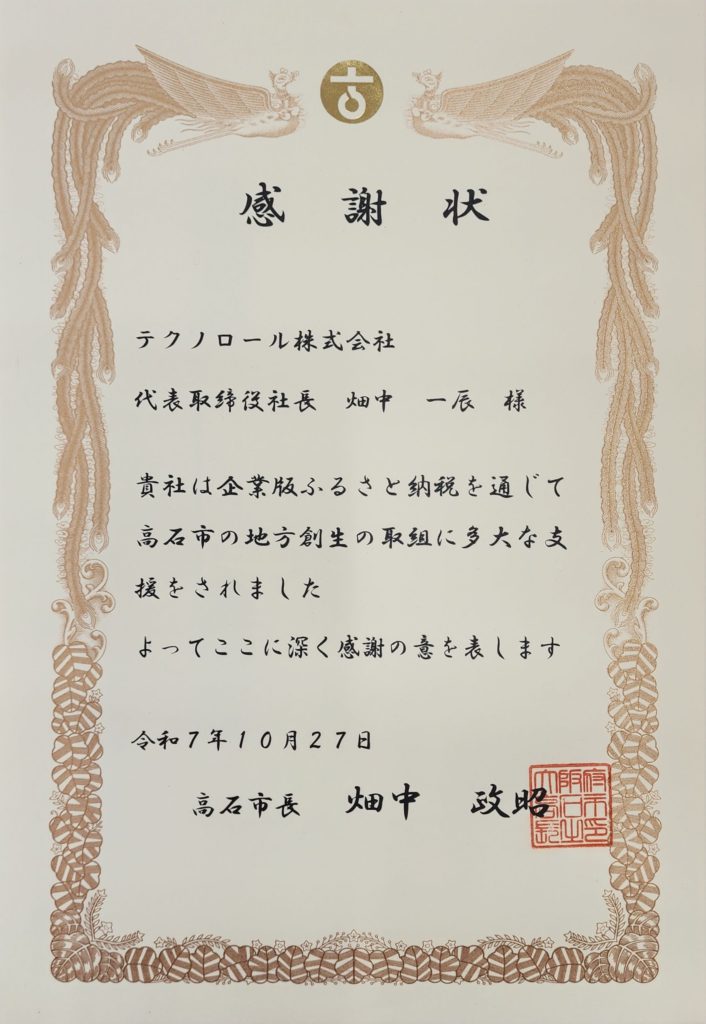 感謝状
テクノロール株式会社
代表取締役社長 畑中 一辰 様
貴社は企業版ふるさと納税を通じて
高石市の地方創生の取組に多大な支
援をされました
よってここに深く感謝の意を表します
令和7年10月27日
高石市長 畑中 政昭